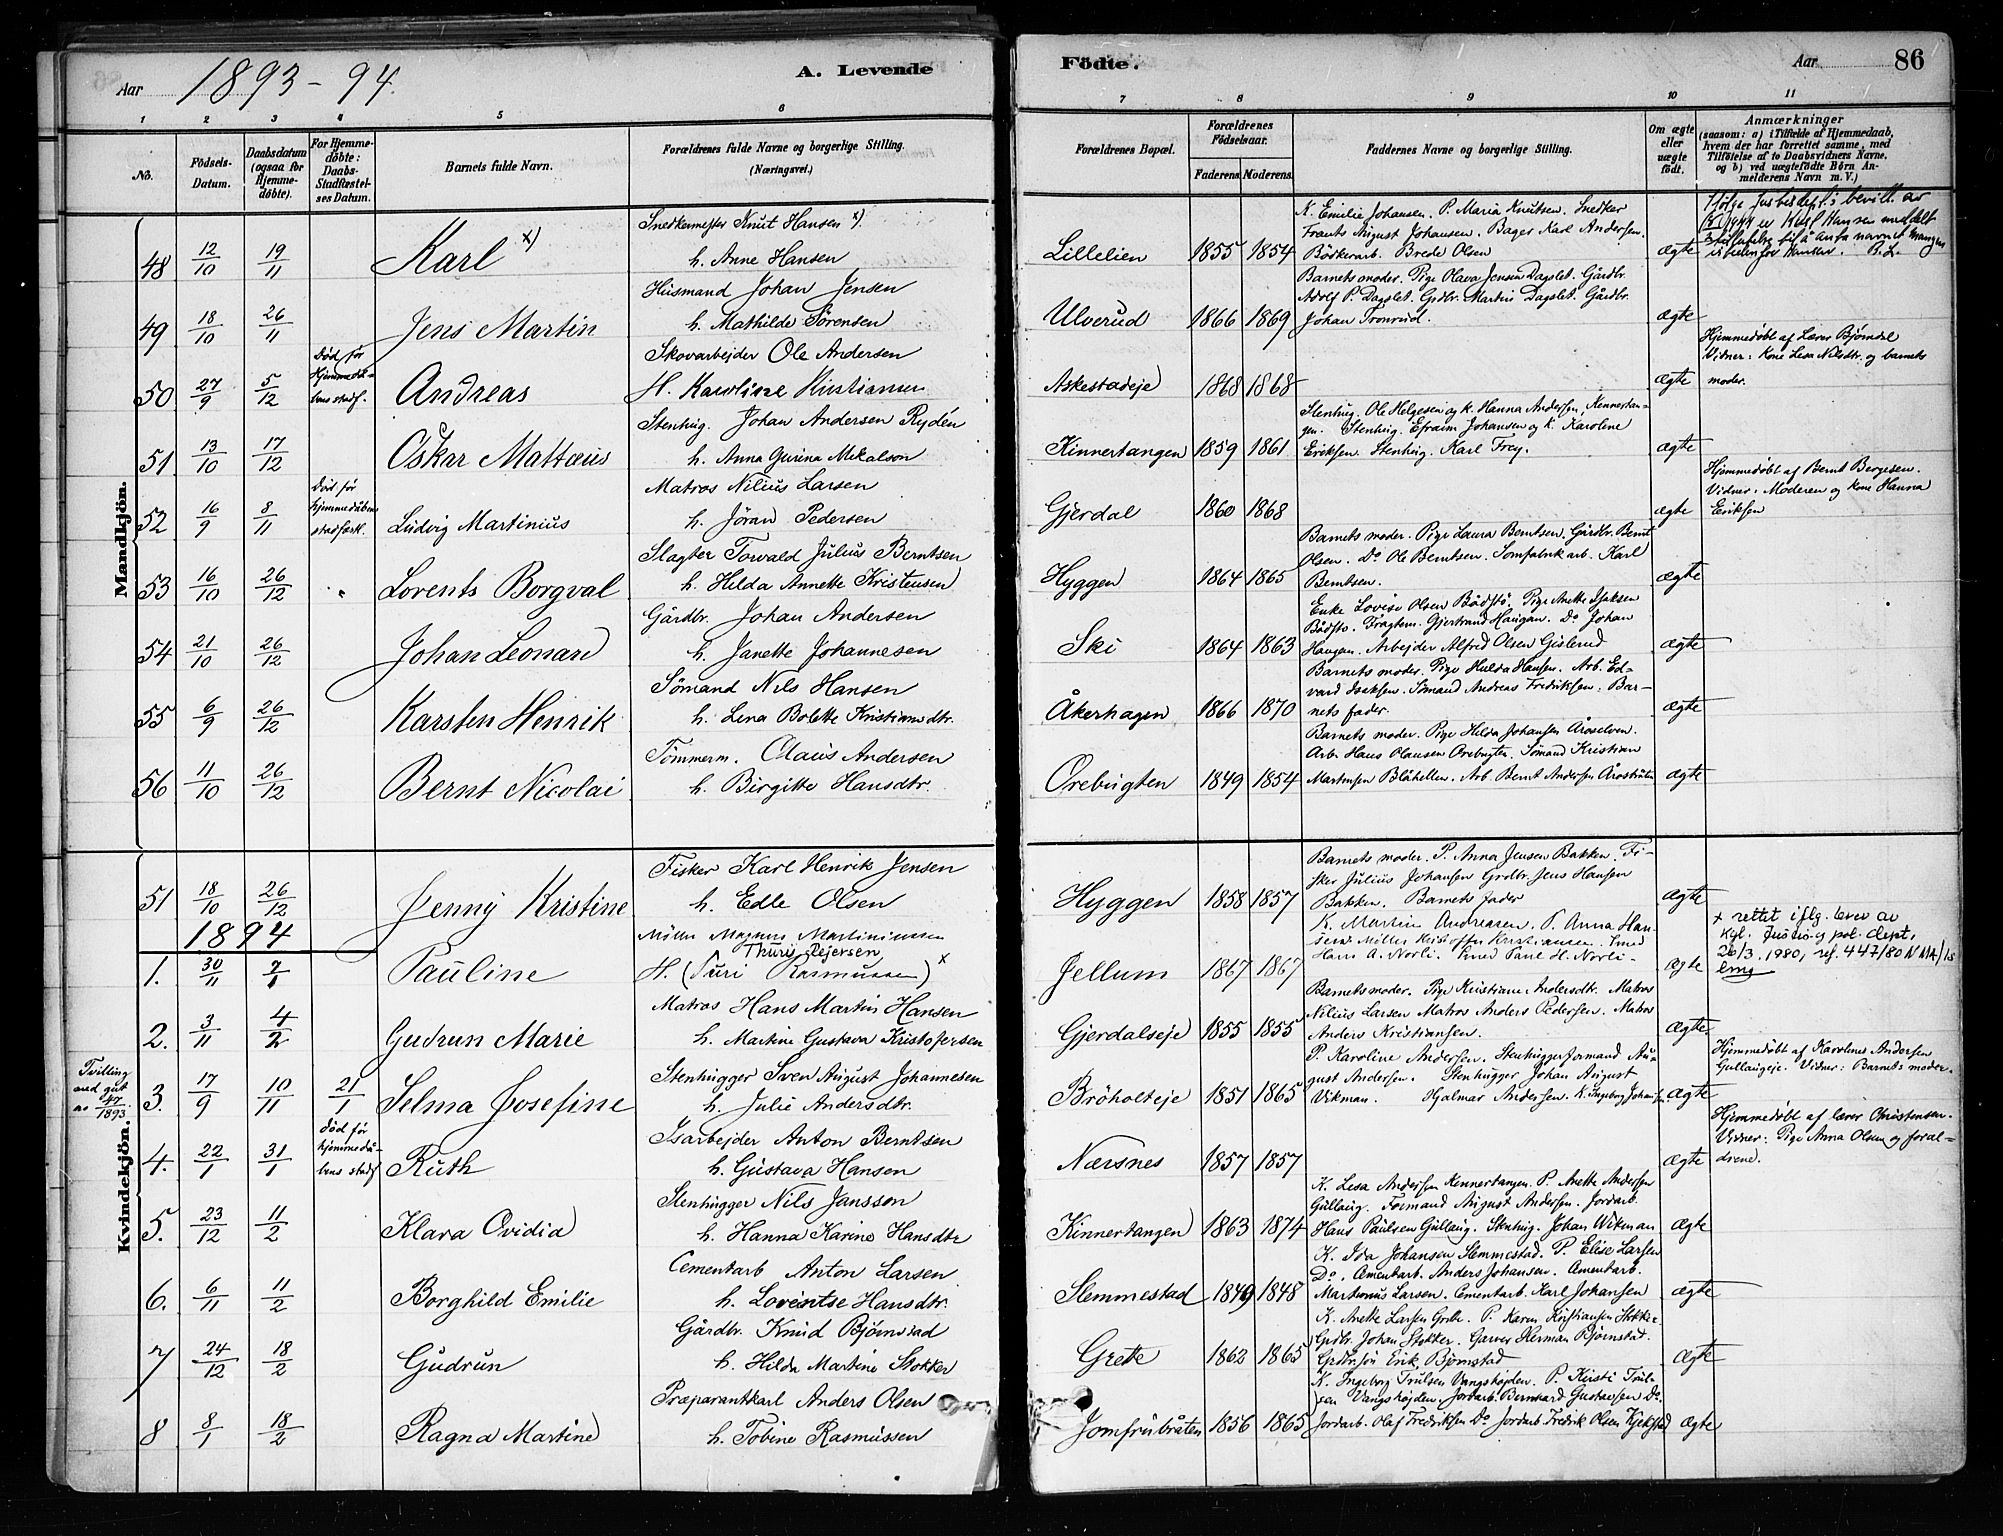 Aar 1893-94. A. Levende
Födte. Aar 86
1 2 3 4 5 6
7 8 9 10 11
No. Födsels-Datum. Daabsdatum (ogsaa for Hjemme-döbte). For Hjemme-döbte: Daabs-Stadfæstel-ses Datum. Barnets fulde Navn. Forældrenes fulde Navne og borgerlige Stilling. (Næringsvei.)
Forældrenes Bopæl. Forældrenes Födselsaar. Faderens. Moderens. Faddernes Navne og borgerlige Stilling. Om ægte eller uægte födt. Anmærkninger (saasom: a) i Tilfælde af Hjemmedaab, hvem der har forrettet samme, med Tilföielse af to Daabsvidners Navne, og b) ved uægtefödte Börn An-melderens Navn m. V.)
Mandkjön.
Snedkermester Knut Hansen x).
48 12/10 19/11 Karl x) h. Anne Hansen
K. Emilie Johansen. P. Maria Knutsen. Snedker
Frants August Johansen. Bager Karl Andersen.
Lillelien 1855 1854 Bödkerarb. Brede Olsen ægte
Husmand Johan Jensen
49 18/10 26/11 Jens Martin h. Mathilde Sørensen
Barnets moder. Pige Olava Jensen Dagslet. Gårdbr.
Adolf P. Dagslet. Grdbr. Martin Dagslet. Gårdbr.
Ulverud 1866 1869 Johan Tronrud. ægte
Skovarbejder Ole Andersen
50 27/9 5/12 Død før Hjemmedå-bens stadf. Andreas H. Karoline Kristiansen
Askestadeje 1868 1868 ægte
Hjemmedøbt af Lærer Bjørndal
Vidner: Kone Lesa Nilsdtr. og barnets
moder.
Stenhug. Johan Andersen Rydén
51 13/10 17/12 Oskar Mattæus h. Anna Gurina Mikalson
Stenhug. Ole Helgesen og k. Hanna Andersen, Kennertan-
gen. Stenhug. Efraim Johansen og K. Karoline
Kinnertangen 1859 1861 Eriksen. Stenhug. Karl Frey. ægte
Matros Nilius Larsen
52 16/9 8/11 Død før hjemmedåbens stadfæst. Ludvig Martinius h. Jöran Pedersen
Gjerdal 1860 1868 ægte
Hjemmedøbt af Bernt Bergesen.
Vidner: Moderen og kone Hanna
Eriksen
Slagter Torvald Julius Berntsen
53 16/10 26/12 Lorents Borgval h. Hilda Annette Kristensen
Barnets moder. Pige Laura Berntsen. Gårdbr. Bernt
Olsen. Do Ole Berntsen. Karl
Hyggen 1864 1865 Berntsen. ægte
Gårdbr. Johan Andersen
54 21/10 26/12 Johan Leonard h. Janette Johannesen
Enke Lovise Olsen Bødstö. Pige Anette Isaksen
Bødstö. Gjertrand Haugan. Do Johan
Ski 1864 1863 Haugan. Arbejder Alfred Olsen Gislerud ægte
Sömand Nils Hansen
55 6/9 26/12 Karsten Henrik h. Lena Bolette Kristiansdtr.
Barnets moder. Pige Hulda Hansen. Arb. Ed-
vard Isaksen. Sömand Andreas Fredriksen. Bar-
Åkerhagen 1866 1870 nets fader. ægte
Tömmerm. Olaus Andersen
56 11/10 26/12 Bernt Nicolai h. Birgitte Hansdtr.
Barnets moder. Pige Hilda Johansen Åroselven.
Arb. Hans Olausen Orebugten. Sömand Kristian
Orebugten 1849 1854 Martinsen Blåhellen. Arb. Bernt Andersen ægte
Kvindekjön.
Fisker Karl Henrik Jensen
51 18/10 26/12 Jenny Kristine h. Edle Olsen
Barnets moder. P. Anna Jensen Bakken. Fi-
sker Julius Johansen Grdbr. Jens Hansen
Hyggen 1858 1857 Bakken. Barnets fader ægte
1894
Møller Magnus Martiniussen
Thuri Pejersen
1. 30/11 7/1 Pauline H. (Turi Rasmussen) x
K. Martine Andreasen. P. Anna Han-
sen. Möller Kristoffer Kristiansen.
Hans A. Norli. Paul H. Norli
Jellum 1867 1867 ægte
x rettet iflg. brev av
kgl. Justis og pol. dept.
26/3. 1980, ref. 447/80 N MA/is
Matros Hans Martin Hansen
2. 3/11 4/2 Gudrun Marie h. Martine Gustava Kristofersen
Barnets moder. Pige Kristiane Andersdtr. Matros
Nilius Larsen Matros Anders Pedersen. Matros
Gjerdalseje 1855 1855 Anders Kristiansen. ægte
Tvilling med gut no 47/1893
Stenhugger Sven August Johannesen
3. 17/9 10/11 21/1 Selma Josefine h. Julie Andersdtr.
P. Karoline Andersen. Stenhuggerformand Au-
gust Andersen. Stenhugger Johan August
Bröholteje 1851 1865 Vikman. Hjalmar Andersen. K. Ingeborg Johansen ægte
Hjemmedøbt af Karoline Andersen
Gullaugeje. Vidner: Barnets moder.
Isarbejder Anton Berntsen
4. 22/1 31/1 Død før hjemmedå-bens stadf Ruth h. Gustava Hansen
Nærsnes 1857 1857 ægte
Hjemmedøbt af lærer Christensen.
Vidner: Pige Anna Olsen og foræl-
drene.
Stenhugger Nils Jansson
5. 23/12 11/2 Klara Ovidia h. Hanna Karine Hansdtr
K. Lesa Andersen Kennertangen. P. Anette Andersen
Gullaug. Formand August Andersen. Jordarb.
Kinnertangen 1863 1874 Hans Paulsen Gullaug. Stenhug. Johan Wikman ægte
Cementarb Anton Larsen
6. 6/11 11/2 Borghild Emilie h. Lorentse Hansdtr.
K. Ida Johansen Slemmestad. P. Elise Larsen
Do. Cementarb. Anders Johansen. Cementarb.
Slemmestad 1849 1848 Martinus Larsen. Cementarb. Karl Johansen ægte
Gårdbr. Knud Bjørnstad
7 24/12 18/2 Gudrun h. Hilda Martine Stokker
K. Anette Larsen Grette. P. Karen Kristiansen Stokker.
Grdbr. Johan Stokker. Garver Herman Bjørnstad.
Grette 1862 1865 Grdbrsön Erik Bjørnstad ægte
Præparantkarl Anders Olsen
8 8/1 18/2 Ragna Martine h. Tobine Rasmussen
K. Ingeborg Trulsen Vangshøjden. P. Kirsti Trul-
sen Vangshøjden. Jordarb. Bernhard Gustavsen Do.
Jomfrubråten 1856 1865 Jordarb. Olaf Fredriksen Do Jordarb Fredrik Olsen Kjekstad ægte